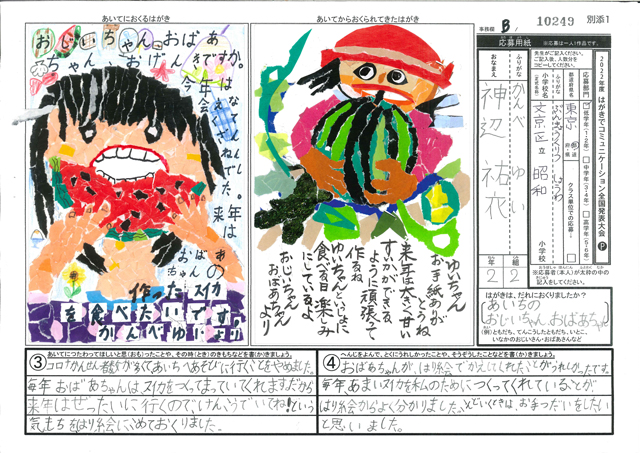 事務局 B
10249
別添1
あいてにおくるはがき
あいてからおくられてきたはがき
応募用紙
※応募は一人1作品です。
2022年度 はがきでコミュニケーション全国発表大会
応募部門
低学年(1・2年)
中学年(3・4年)
高学年(5・6年)
クラス単位での応募
小学校名
東京
文京区立 昭和
小学校
ふりがな かんべ ゆい
おなまえ
2年 2組
※応募者(本人)が太枠の中の
記入をしてください。
はがきは、だれにおくりましたか?
あいちの
おじいちゃん、おばあちゃん
(例)ともだち、てんこうしたともだち、いとこ、
いなかのおじいさん・おばあさんなど
おじいちゃん、おばあ
ちゃん、おげんきですか。
今年は
会えなくて
ざんねんでした。
来年は
おばあ
ちゃんの
作ったスイカ
を食べたいです。
かんべゆいより
ゆいちゃん
お手紙ありが
とうね
来年は大きく甘い
すいかができる
ように頑張って
作るね
ゆいちゃんといっしょに
食べる日を楽しみ
にしているよ
おじいちゃん
おばあちゃんより
③ あいてにつたわってほしいと思(おも)ったことや、その時(とき)のきもちなどを書(か)きましょう。
コロナかんせん者数が多くてあいちへあそびに行くことをやめました。
毎年おばあちゃんは、スイカをつくってまっていてくれますだから
来年はぜったいに行くので、げんきでいてね!という
気もちをはり絵にこめておくりました。
④ へんじをよんで、とくにうれしかったことや、そうぞうしたことなどを書(か)きましょう。
おばあちゃんが、はり絵でかえしてくれたことがうれしかったです。
毎年、あまいスイカを私のためにつくってくれていることが
はり絵からよく分かりました。
と思いました。